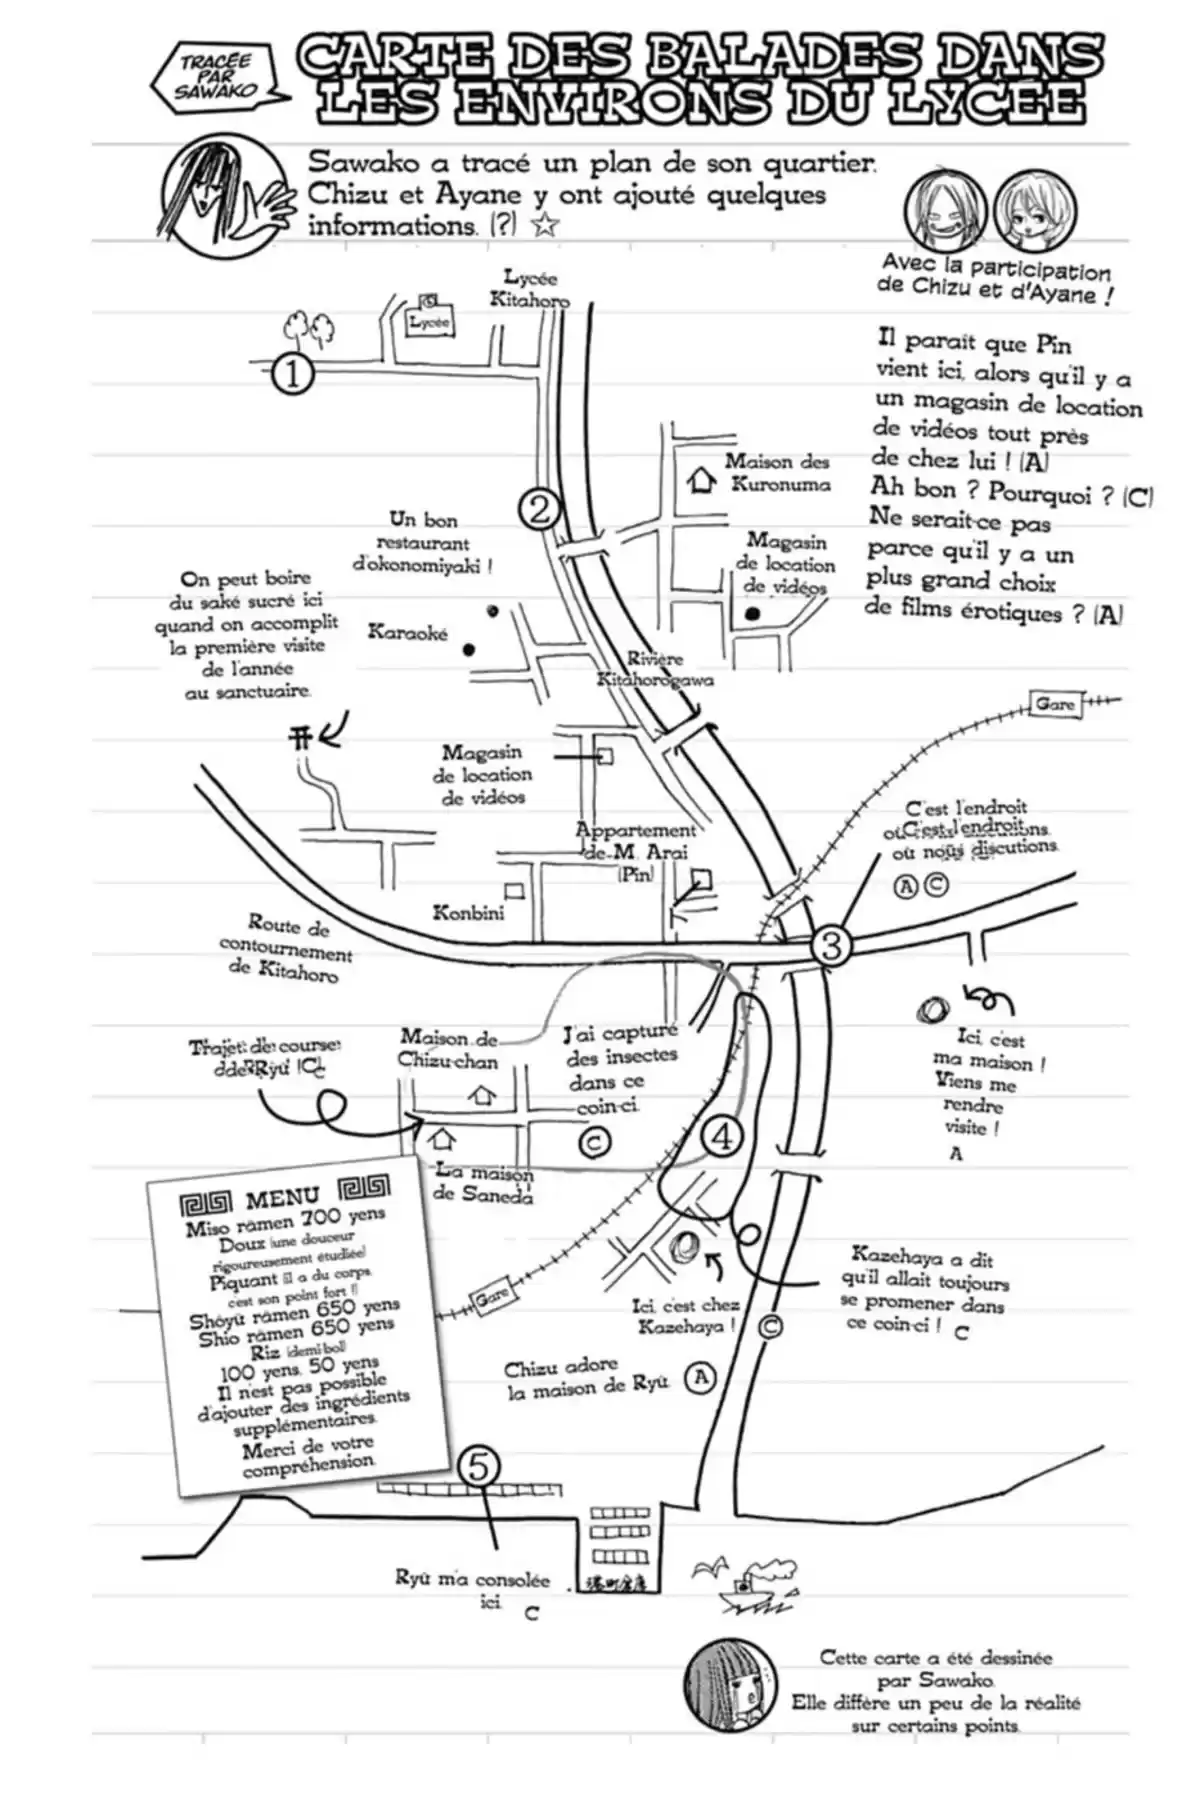 TRACÉE
PAR
SAWAKO
CARTE DES BALADES DANS
LES ENVIRONS DU LYCÉE
Sawako a tracé un plan de son quartier.
Chizu et Ayane y ont ajouté quelques
informations. (?) ☆
Avec la participation
de Chizu et d'Ayane !
Lycée
Kitahoro
Lycée
1
Il paraît que Pin
vient ici, alors qu'il y a
un magasin de location
de vidéos tout près
de chez lui ! (A)
Ah bon ? Pourquoi ? (C)
Ne serait-ce pas
parce qu'il y a un
plus grand choix
de films érotiques ? (A)
Maison des
Kuronuma
2
Un bon
restaurant
d'okonomiyaki !
Magasin
de location
de vidéos
On peut boire
du saké sucré ici
quand on accomplit
la première visite
de l'année
au sanctuaire.
Karaoké
Rivière
Kitahorogawa
Gare
Magasin
de location
de vidéos
Appartement
de M. Arai
(Pin)
C'est l'endroit
où nous discutions.
A C
Konbini
Route de
contournement
de Kitahoro
3
Ici, c'est
ma maison !
Viens me
rendre
visite !
A
Trajet de course
de Ryû ! C
Maison de
Chizu-chan
J'ai capturé
des insectes
dans ce
coin-ci.
C
4
La maison
de Sanada
MENU
Miso râmen 700 yens
Doux (une douceur
rigoureusement étudiée)
Piquant (il a du corps,
c'est son point fort !)
Shôyû râmen 650 yens
Shio râmen 650 yens
Riz (demi-bol)
100 yens, 50 yens
Il n'est pas possible
d'ajouter des ingrédients
supplémentaires.
Merci de votre
compréhension.
Gare
Ici, c'est chez
Kazehaya !
C
Kazehaya a dit
qu'il allait toujours
se promener dans
ce coin-ci ! C
Chizu adore
la maison de Ryû.
A
5
Ryû m'a consolée
ici. C
港町倉庫
Cette carte a été dessinée
par Sawako.
Elle diffère un peu de la réalité
sur certains points.